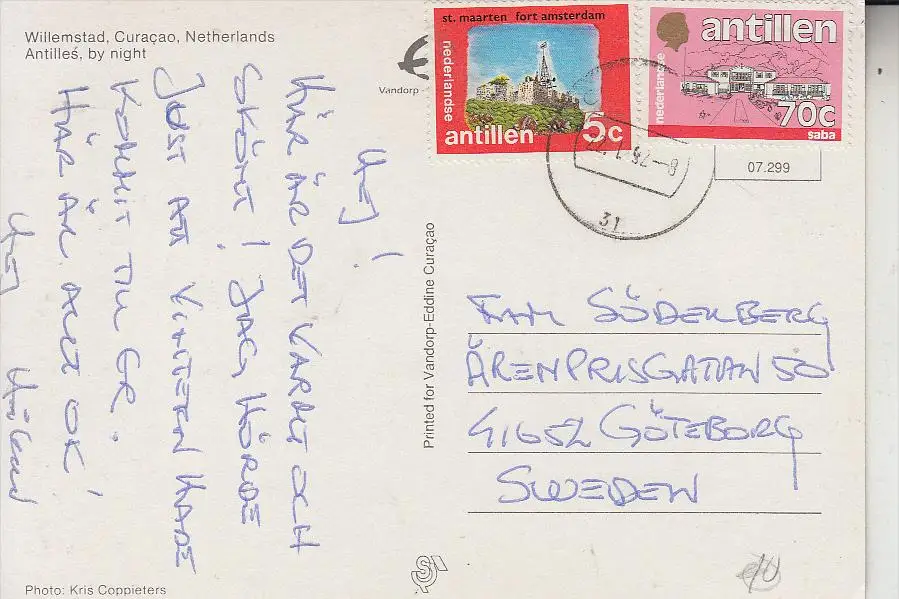 Willemstad, Curaçao, Netherlands
Antilles, by night
Vandorp -
st. maarten fort amsterdam
nederlandse
antillen
5c
antillen
nederlandse
70c
saba
1.92-8
31
07.299
HEJ!
HÄR ÄR DET VARMT OCH
SKÖNT! JAG HÖRDE
JUST ATT VINTERN HADE
KOMMIT TILL ER.
HÄR ÄR ALLT OK!
HEJ
Printed for Vandorp-Eddine Curaçao
FAM SÖDERBERG
ÄRENPRISGATAN 50
41652 GÖTEBORG
SWEDEN
Photo: Kris Coppieters
10